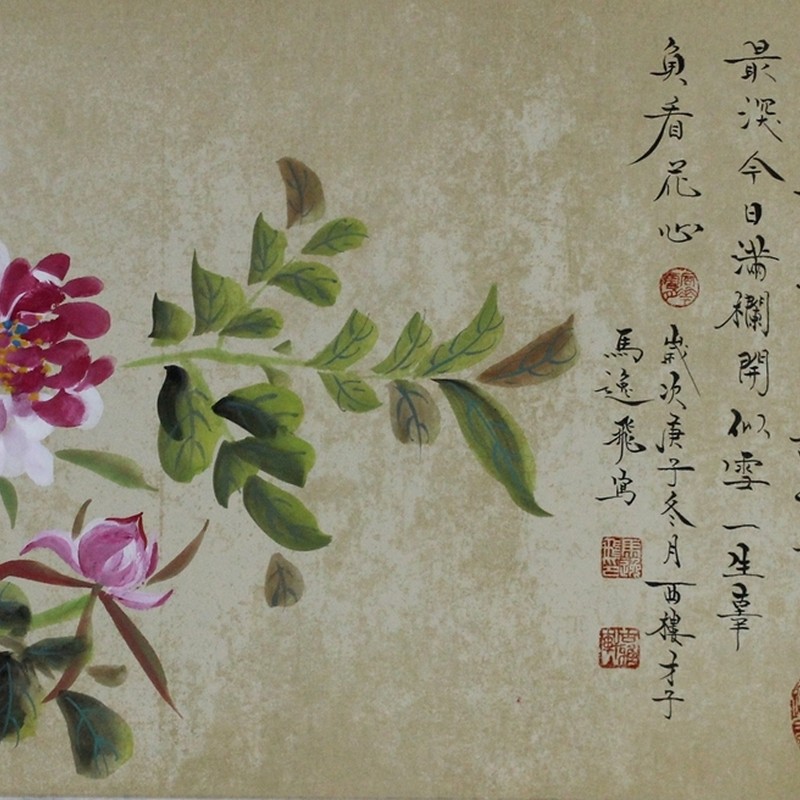 最深今日滿欄開似雪一生辜
負看花心
歲次庚子冬月西樓才子
馬逸飛寫